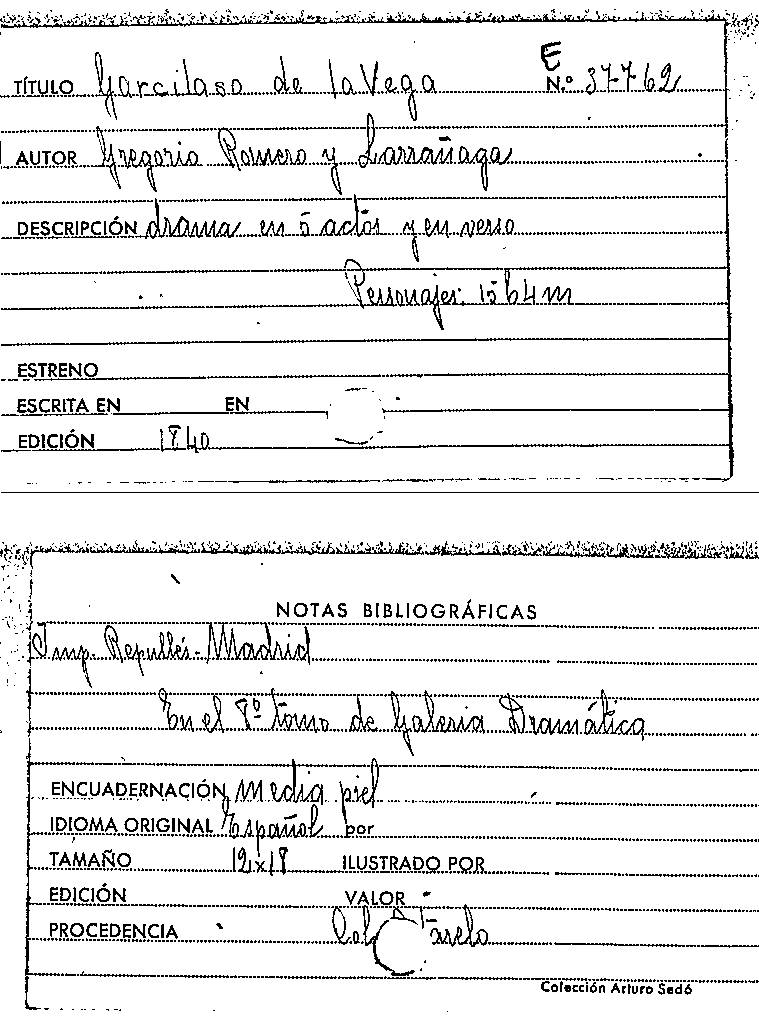 E
TÍTULO Garcilaso de la Vega N.º 37762
AUTOR Gregorio Romero y Larrañaga
DESCRIPCIÓN drama en 5 actos y en verso
Personajes: 15 h 4 m
ESTRENO
ESCRITA EN EN
EDICIÓN 1840
NOTAS BIBLIOGRÁFICAS
Imp. Repullés - Madrid
En el 8º tomo de Galeria Dramática
ENCUADERNACIÓN media piel
IDIOMA ORIGINAL Español por
TAMAÑO 12x18 ILUSTRADO POR
EDICIÓN VALOR
PROCEDENCIA
Colección Arturo Sedó